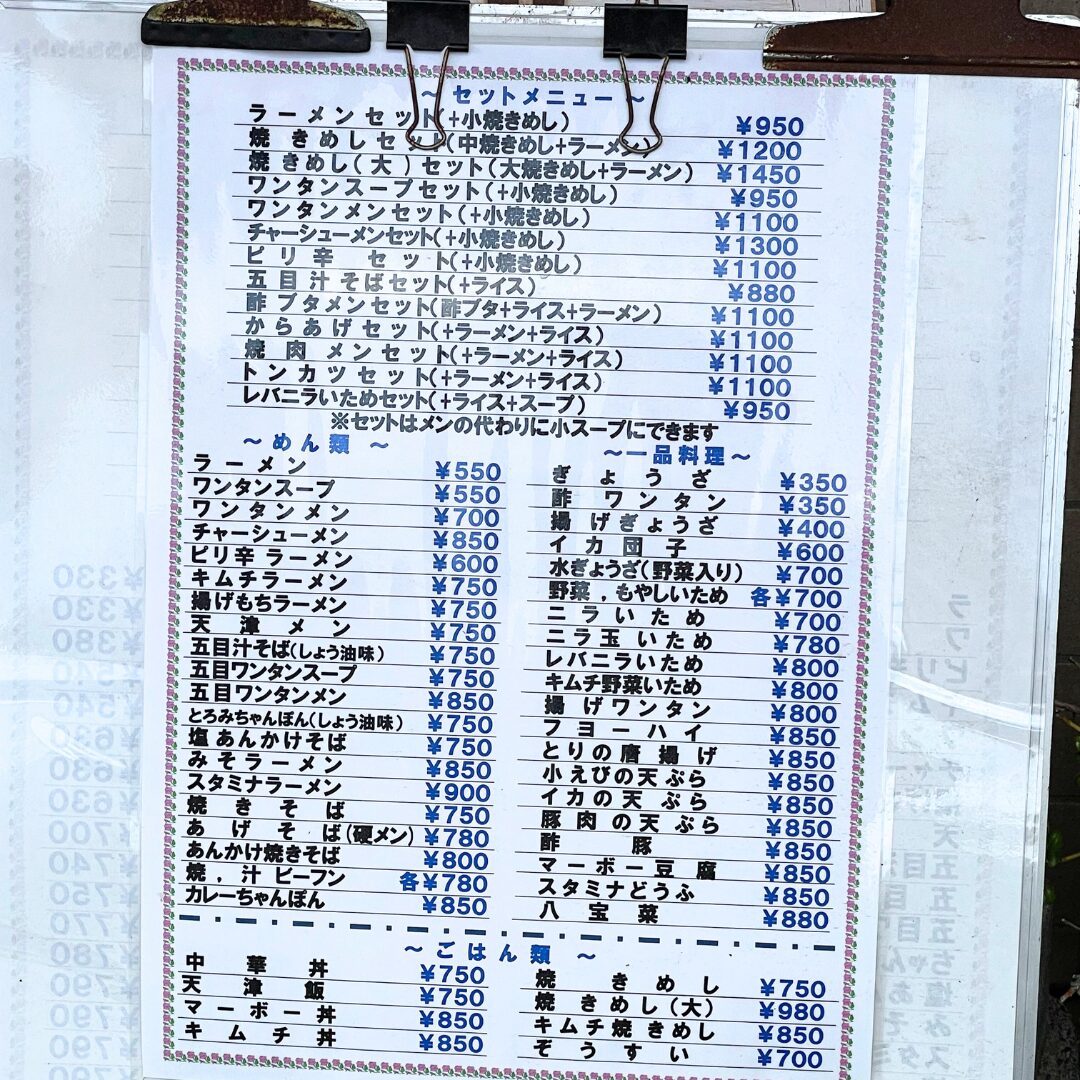 ～ セットメニュー ～
ラーメンセット(+小焼きめし) ¥950
焼きめしセット(中焼きめし+ラーメン) ¥1200
焼きめし(大)セット(大焼きめし+ラーメン) ¥1450
ワンタンスープセット(+小焼きめし) ¥950
ワンタンメンセット(+小焼きめし) ¥1100
チャーシューメンセット(+小焼きめし) ¥1300
ピリ辛 セット(+小焼きめし) ¥1100
五目汁そばセット(+ライス) ¥880
酢ブタメンセット(酢ブタ+ライス+ラーメン) ¥1100
からあげセット(+ラーメン+ライス) ¥1100
焼肉メンセット(+ラーメン+ライス) ¥1100
トンカツセット(+ラーメン+ライス) ¥1100
レバニラいためセット(+ライス+スープ) ¥950
※セットはメンの代わりに小スープにできます
～ めん類 ～
ラーメン ¥550
ワンタンスープ ¥550
ワンタンメン ¥700
チャーシューメン ¥850
ピリ辛ラーメン ¥600
キムチラーメン ¥750
揚げもちラーメン ¥750
天津メン ¥750
五目汁そば(しょう油味) ¥750
五目ワンタンスープ ¥750
五目ワンタンメン ¥850
とろみちゃんぽん(しょう油味) ¥750
塩あんかけそば ¥750
みそラーメン ¥850
スタミナラーメン ¥900
焼きそば ¥750
あげそば(硬メン) ¥780
あんかけ焼きそば ¥800
焼,汁ビーフン 各¥780
カレーちゃんぽん ¥850
～一品料理～
ぎょうざ ¥350
酢ワンタン ¥350
揚げぎょうざ ¥400
イカ団子 ¥600
水ぎょうざ(野菜入り) ¥700
野菜,もやしいため 各¥700
ニラいため ¥700
ニラ玉いため ¥780
レバニラいため ¥800
キムチ野菜いため ¥800
揚げワンタン ¥800
フヨーハイ ¥850
とりの唐揚げ ¥850
小えびの天ぷら ¥850
イカの天ぷら ¥850
豚肉の天ぷら ¥850
酢豚 ¥850
マーボー豆腐 ¥850
スタミナどうふ ¥850
八宝菜 ¥880
～ ごはん類 ～
中華丼 ¥750
天津飯 ¥750
マーボー丼 ¥850
キムチ丼 ¥850
焼きめし ¥750
焼きめし(大) ¥980
キムチ焼きめし ¥850
ぞうすい ¥700